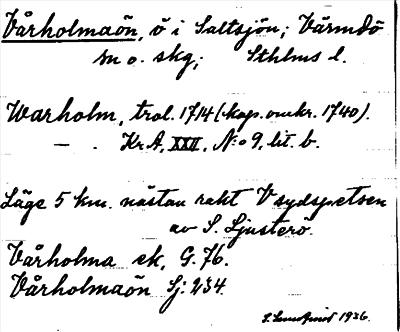 Vårholmaön, ö i Saltsjön; Värmdö
sn o. skg; Sthlms l.
Warholm, trol. 1714 (kop. omkr. 1740).
— . Kr.A, XXII, N:o 9, lit. b.
Läge 5 km. nästan rakt V sydspetsen
av S. Ljusterö.
Vårholma ek, G. 76.
Vårholmaön Sj: 234.
1936.